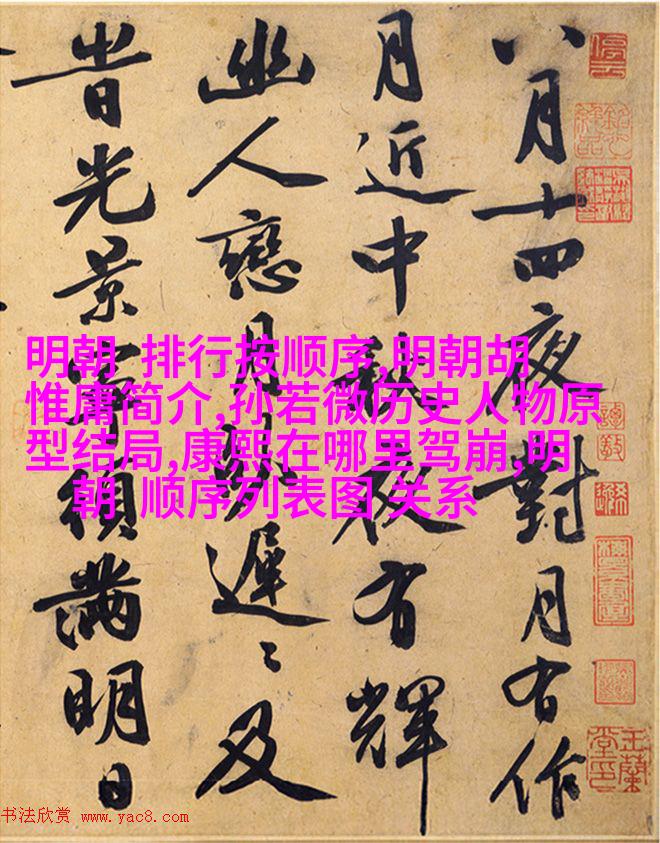 八月十四夜對月有作
月近中秋夜有輝
幽人戀月遲〻及
旹光景寧須滿明日
明朝 排行按顺序,明朝胡
惟庸简介,孙若微历史人物原
型结局,康熙在哪里驾崩,明
朝 顺序列表图 关系
停云
玉蘭堂印
书法欣赏 www.yac8.com